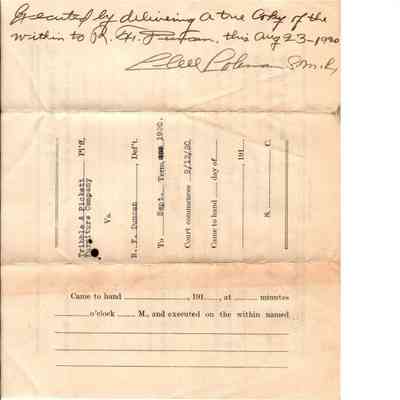 Executed by delivering a true Copy of the
within to R. this Aug 23-1920
Coleman S.M.C.
Tribble & Pickett
Furniture Company Pl'ff.
Vs.
R. F. Duncan, Def't.
To Sept. Term, 1920.
Court commences 9/13/20.
Came to hand day of
, 191
S. C.
Came to hand , 191 , at minutes
o'clock M., and executed on the within named